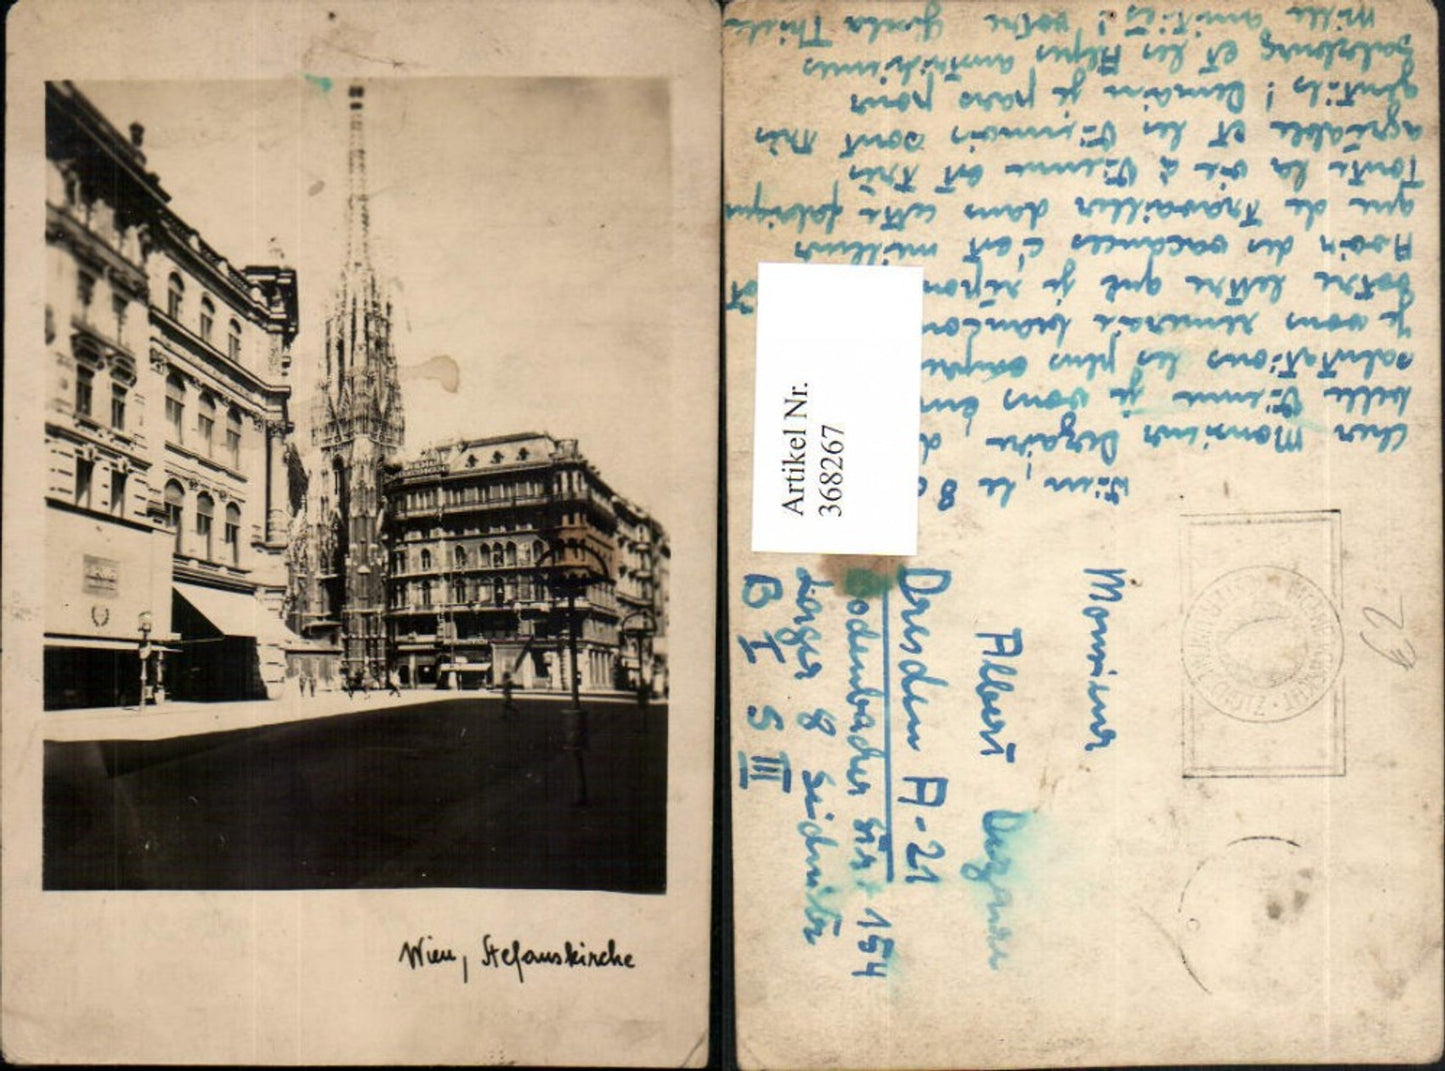 Wien, Stefanskirche
Artikel Nr.
368267
Wien, le 8
Cher Monsieur Dezaire, d
belle Vienne je vous
salutations les plus
je vous remercie beaucou
votre lettre que je
Avoir des vacances c'est meilleur
que de travailler dans cette fabrique
Toute la vie à Vienne est très
agréable et les Viennois sont très
gentils! Demain je pars pour
Salzbourg et les Alpes autrichiennes
Mille amitiés! votre Gisela Thiele
Monsieur
Albert
Dresden A-21
Bodenbacher Str. 154
Lager 8
B I S III